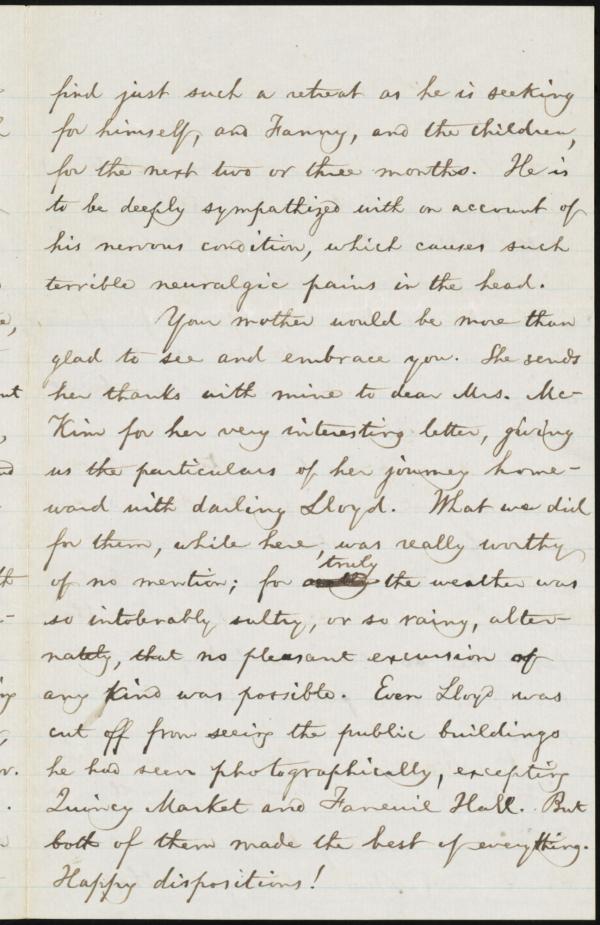 find just such a retreat as he is seeking
for himself, and Fanny, and the children,
for the next two or three months. He is
to be deeply sympathized with on account of
his nervous condition, which causes such
terrible neuralgic pains in the head.
Your mother would be more than
glad to see and embrace you. She sends
her thanks with mine to dear Mrs. Mc-
Kim for her very interesting letter, giving
us the particulars of her journey home-
ward with darling Lloyd. What we did
for them, while here, was really worthy
truly
of no mention; for the weather was
so intolerably sultry, or so rainy, alter-
nately, that no pleasant excursion of
any kind was possible. Even Lloyd was
cut off from seeing the public buildings
he had seen photographically, excepting
Quincy Market and Faneuil Hall. But
both of them made the best of everything.
Happy dispositions!